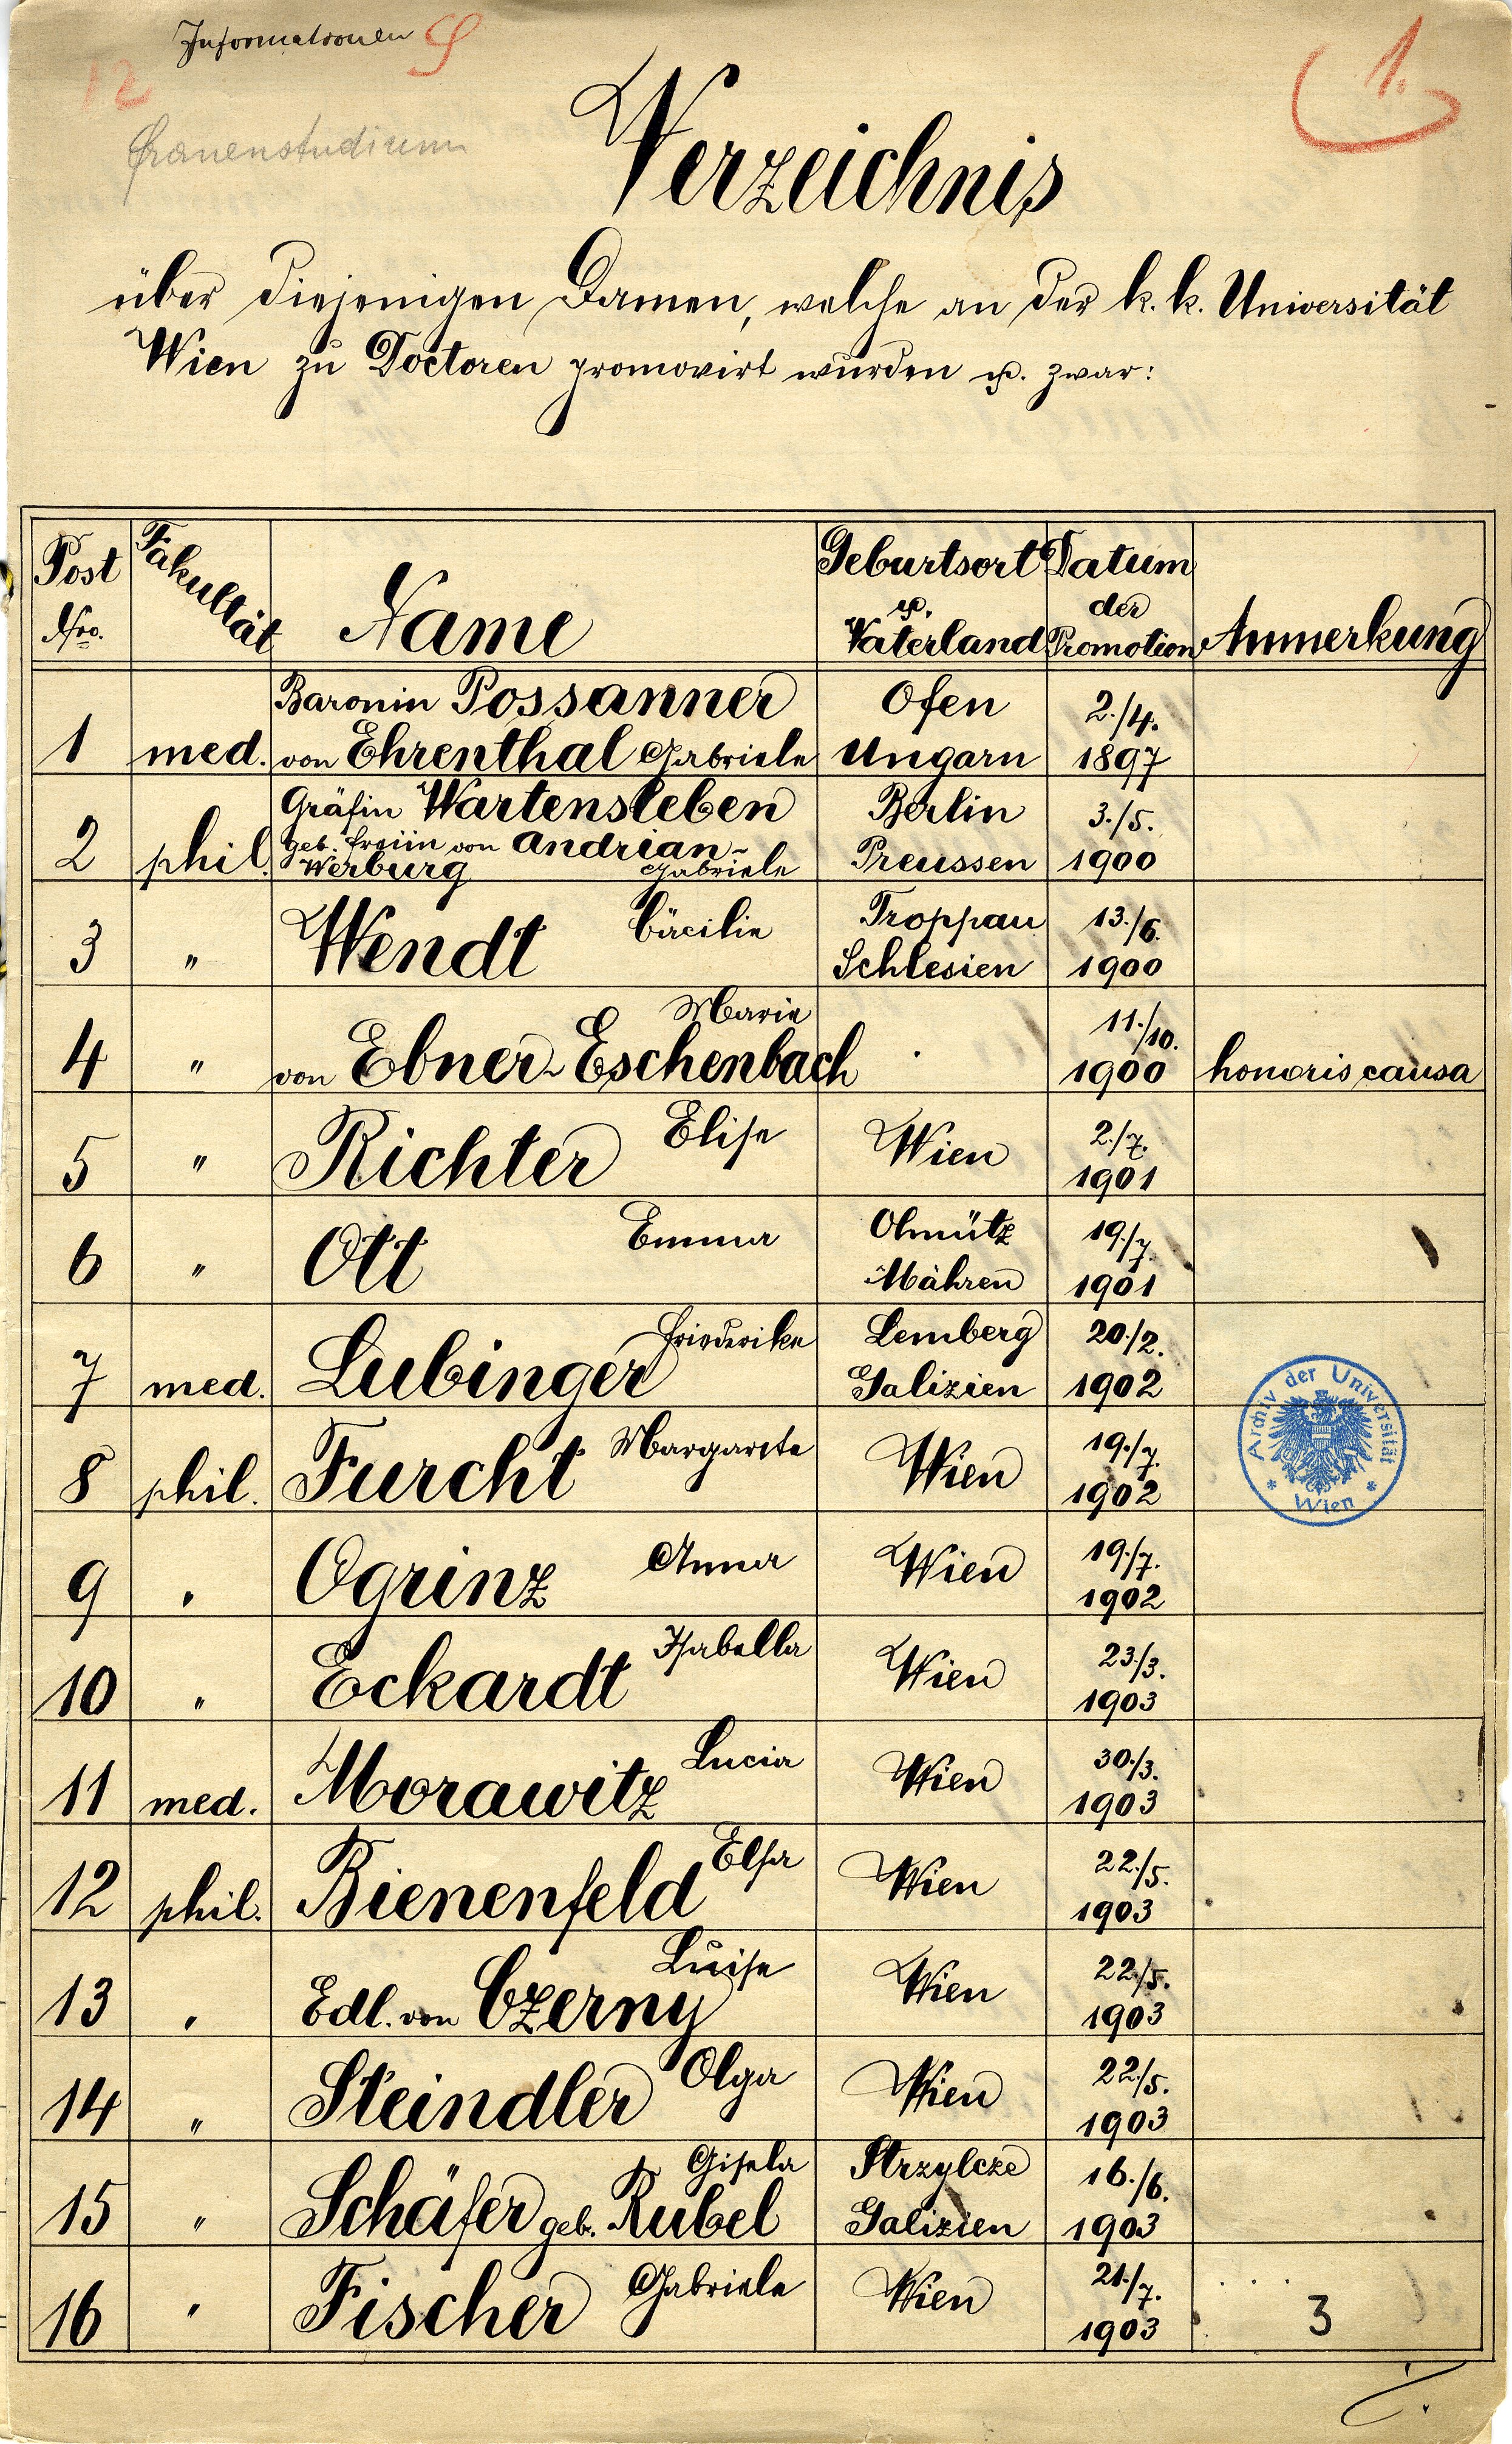 Informationen
12
1.
Frauenstudium
Verzeichnis
über diejenigen Damen, welche an der k. k. Universität
Wien zu Doctoren promovirt wurden u. zwar:
Post Nro. Fakultät Name Geburtsort u. Vaterland Datum der Promotion Anmerkung
Baronin Possanner Ofen 2./4.
1 med. von Ehrenthal Gabriele Ungarn 1897
Gräfin Wartensleben Berlin 3./5.
2 phil. geb. Freiin von Andrian- Preussen 1900
Werburg Gabriele
Cäcilie Troppau 13./6.
3 " Wendt Schlesien 1900
Marie 11./10.
4 " von Ebner-Eschenbach 1900 honoris causa
Elise 2./7.
5 " Richter Wien 1901
Emma Olmütz 19./7.
6 " Ott Mähren 1901
Friederike Lemberg 20./2.
7 med. Lubinger Galizien 1902
Margarete 19./7.
8 phil. Furcht Wien 1902
Anna 19./7.
9 " Ogrinz Wien 1902
Isabella 23./3.
10 " Eckardt Wien 1903
Lucia 30./3.
11 med. Morawitz Wien 1903
Elsa 22./5.
12 phil. Bienenfeld Wien 1903
Luise 22./5.
13 " Edl. von Czerny Wien 1903
Olga 22./5.
14 " Steindler Wien 1903
Gisela Strzylcze 16./6.
15 " Schäfer geb. Rubel Galizien 1903
Gabriele 21./7.
16 " Fischer Wien 1903
3
Archiv der Universität
* Wien *